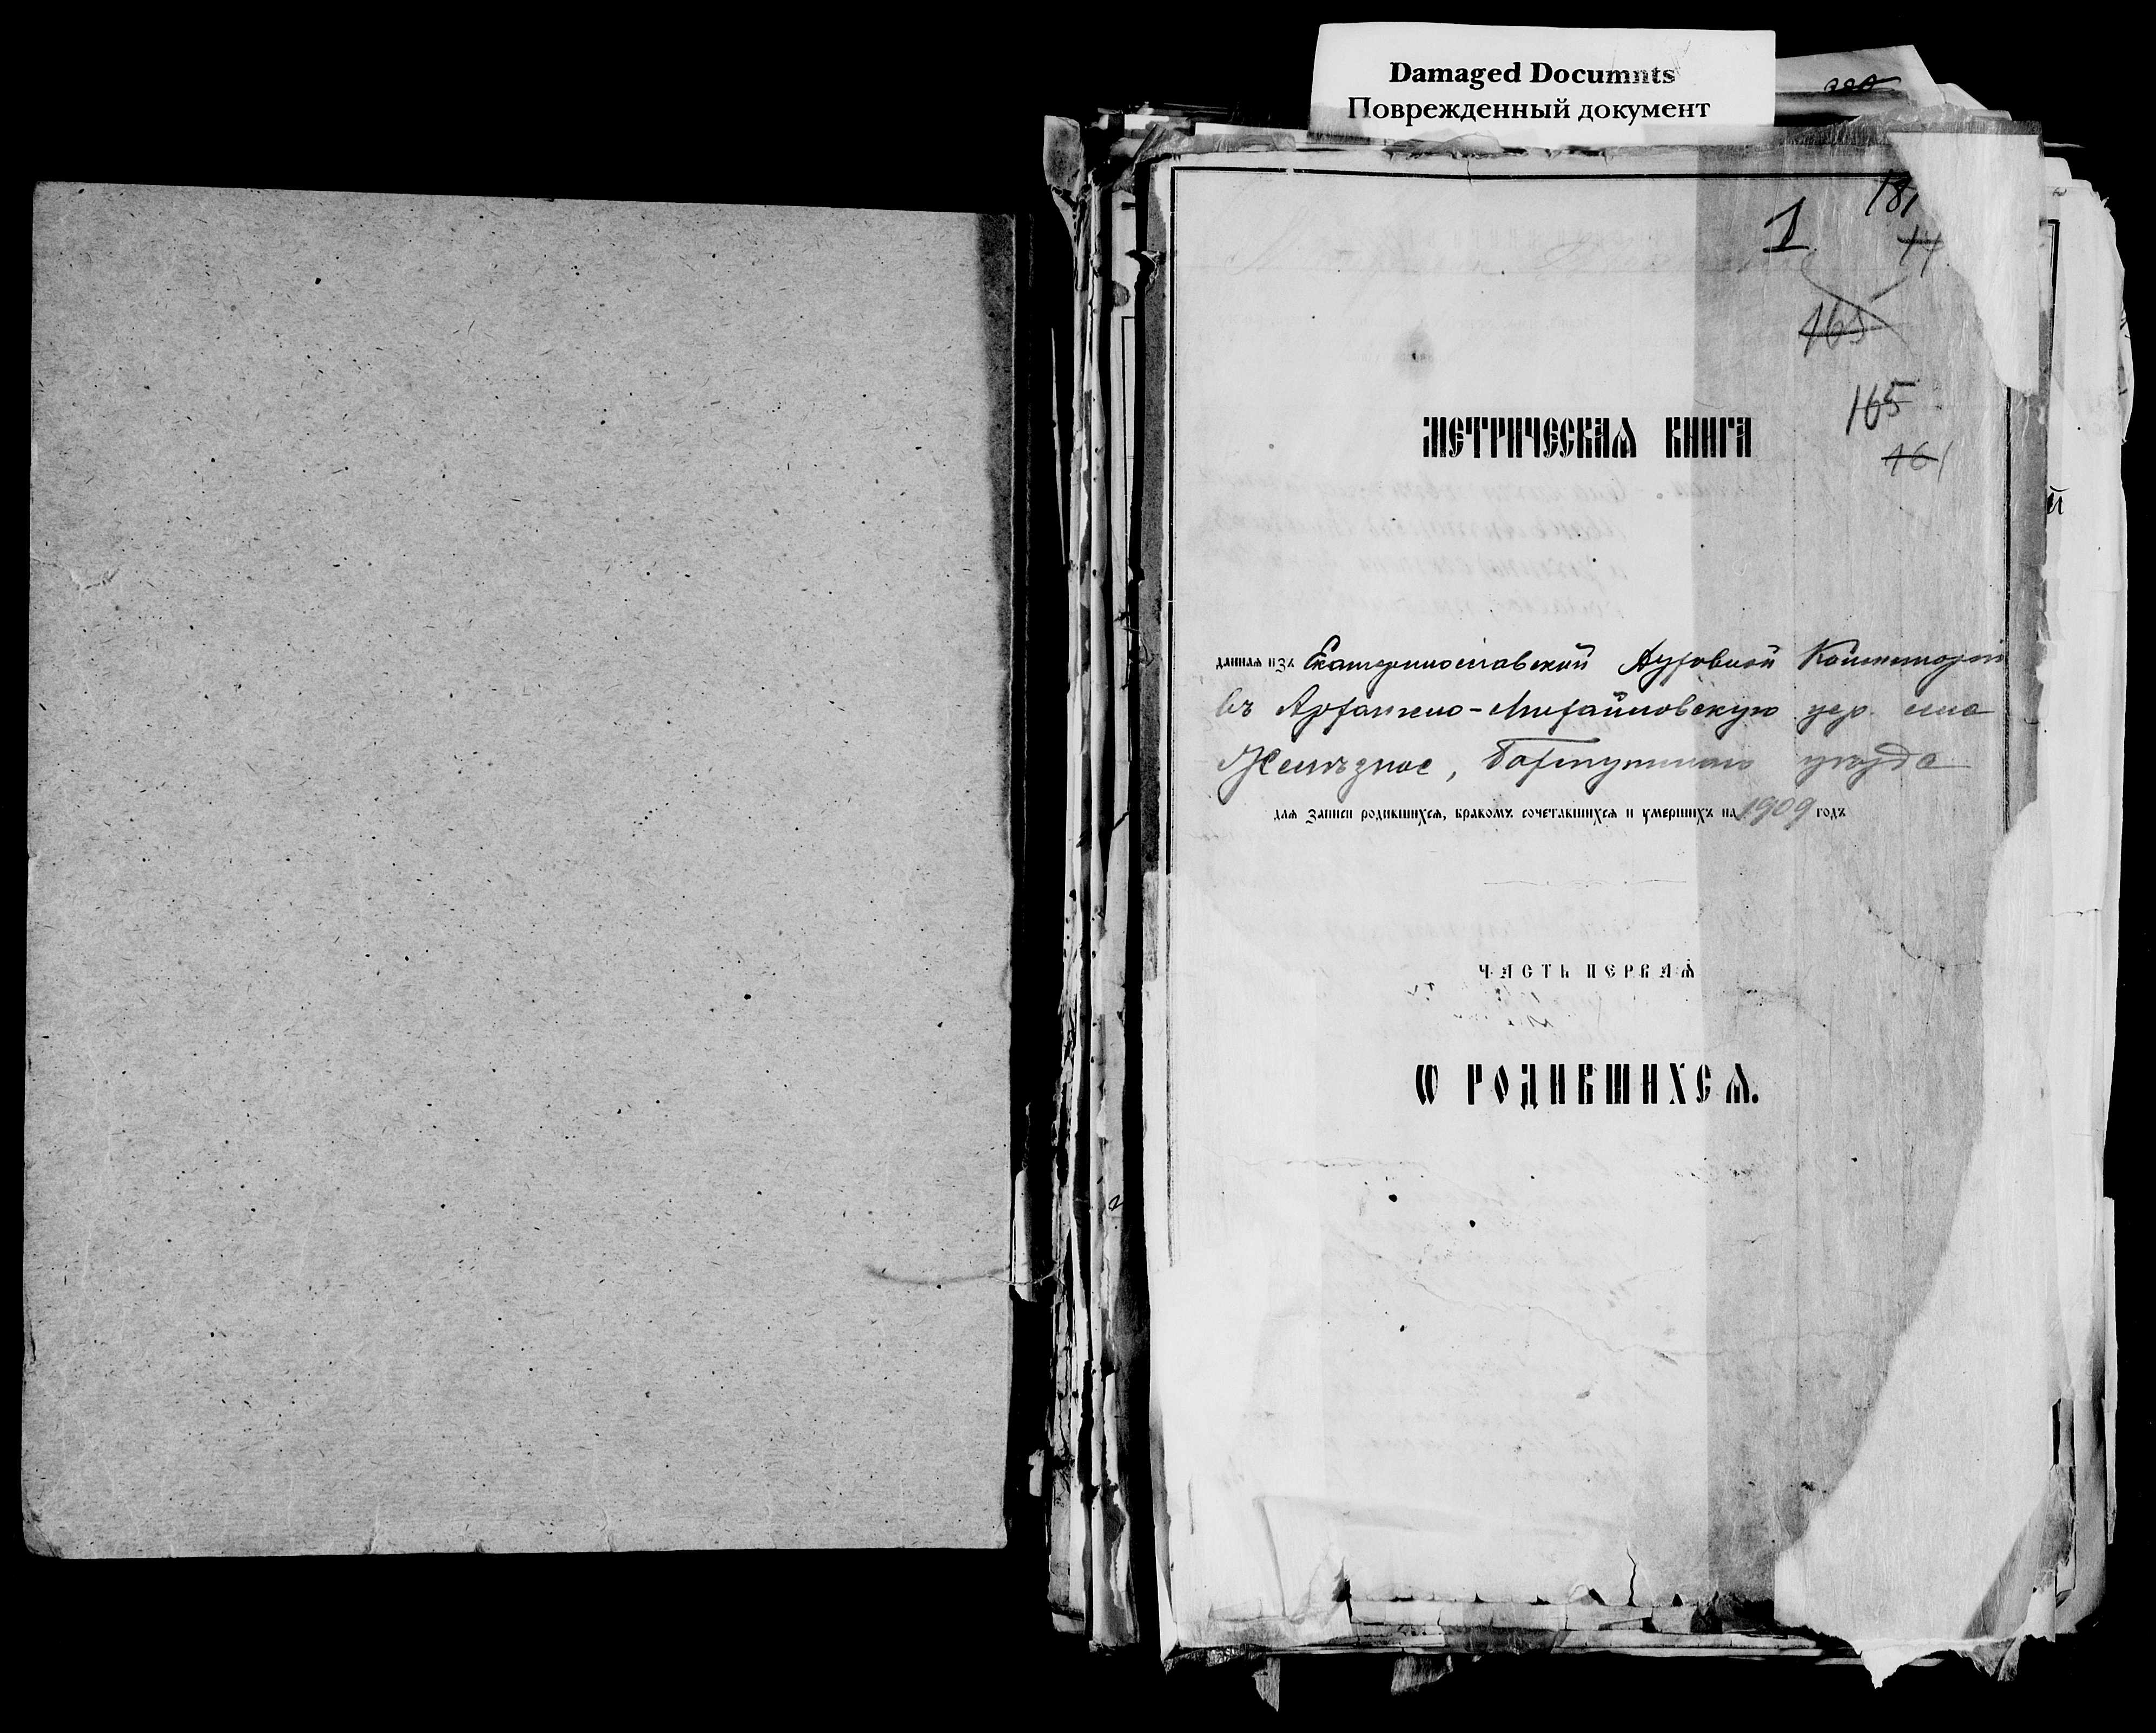 Damaged Documnts
Поврежденный документ
181
1
14
465
МЕТРИЧЕСКАѦ КНИГА
165
461
данная изъ Екатеринославской Духовной Консисторіи
въ Архангело-Михайловскую цер. села
Желѣзное, Бахмутскаго уѣзда
для записи родившихсѧ, бракомъ сочетавшихсѧ и умершихъ на 1909 годъ
ЧАСТЬ ПЕРВАѦ
Ѡ РОДИВШИХСѦ.